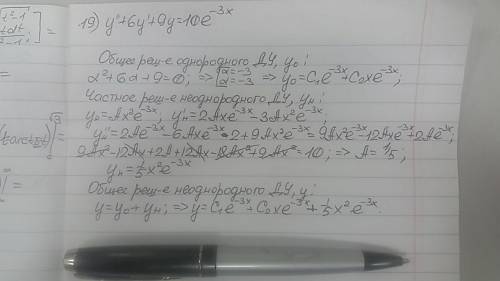 t²-1
tdt
t²-1] =
=
(tarctgt)|√3
=
19) y''+6y'+9y=10e^{-3x}
Общее реш-е однородного ДУ, y₀:
α²+6α+9=0; ⇒ [α=-3 α=-3 ⇒ y₀=C₁e^{-3x}+C₂xe^{-3x};
Частное реш-е неоднородного ДУ, yн:
yн=Ax²e^{-3x}; y'н=2Axe^{-3x}-3Ax²e^{-3x};
y''н=2Ae^{-3x}-6Axe^{-3x}·2+9Ax²e^{-3x}=9Ax²e^{-3x}-12Axe^{-3x}+2Ae^{-3x};
9Ax²-12Ax+2A+12Ax-18Ax²+9Ax²=10; ⇒ A=1/5;
yн=1/5x²e^{-3x}
Общее реш-е неоднородного ДУ, y:
y=y₀+yн; ⇒ y=C₁e^{-3x}+C₂xe^{-3x}+1/5x²e^{-3x}.